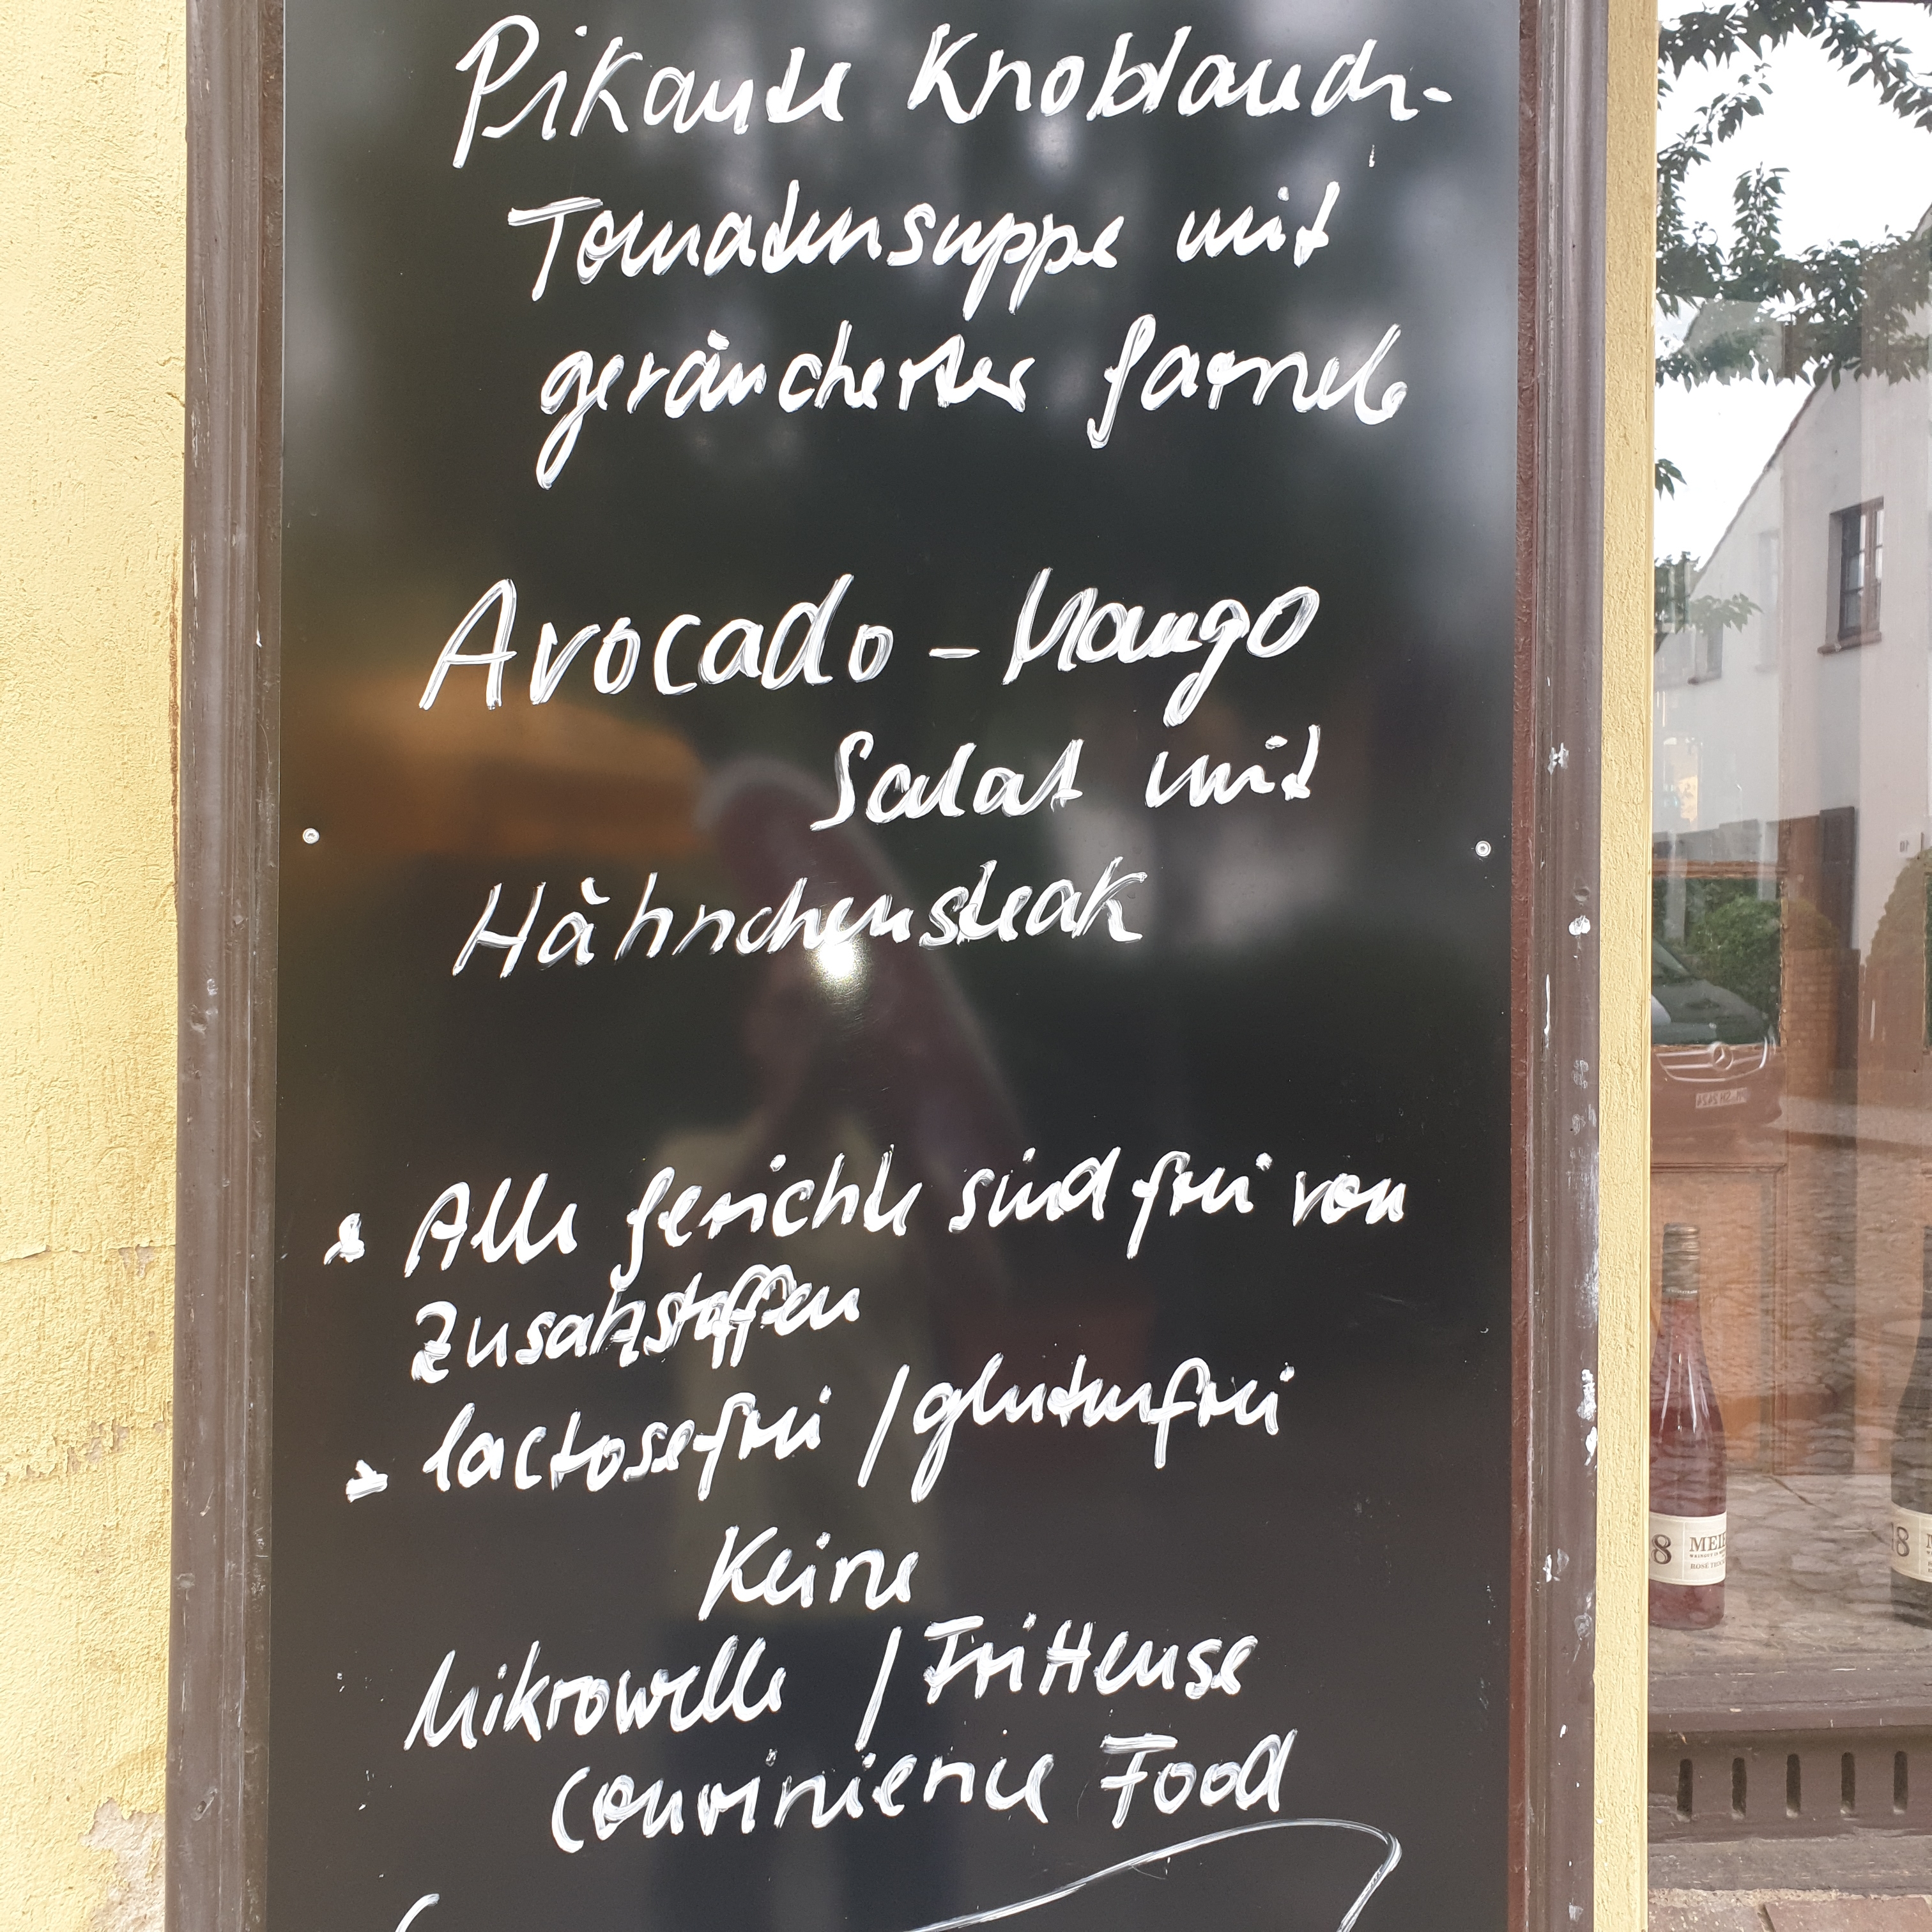 Pikante Knoblauch-
Tomatensuppe mit
geräucherter Garnele
Avocado - Mango
Salat mit
Hähnchensteak
* Alle Gerichte sind frei von
Zusatzstoffen
* lactosefrei / glutenfrei
Keine
Mikrowelle / Fritteuse
Convinience Food
8 MEIE
18